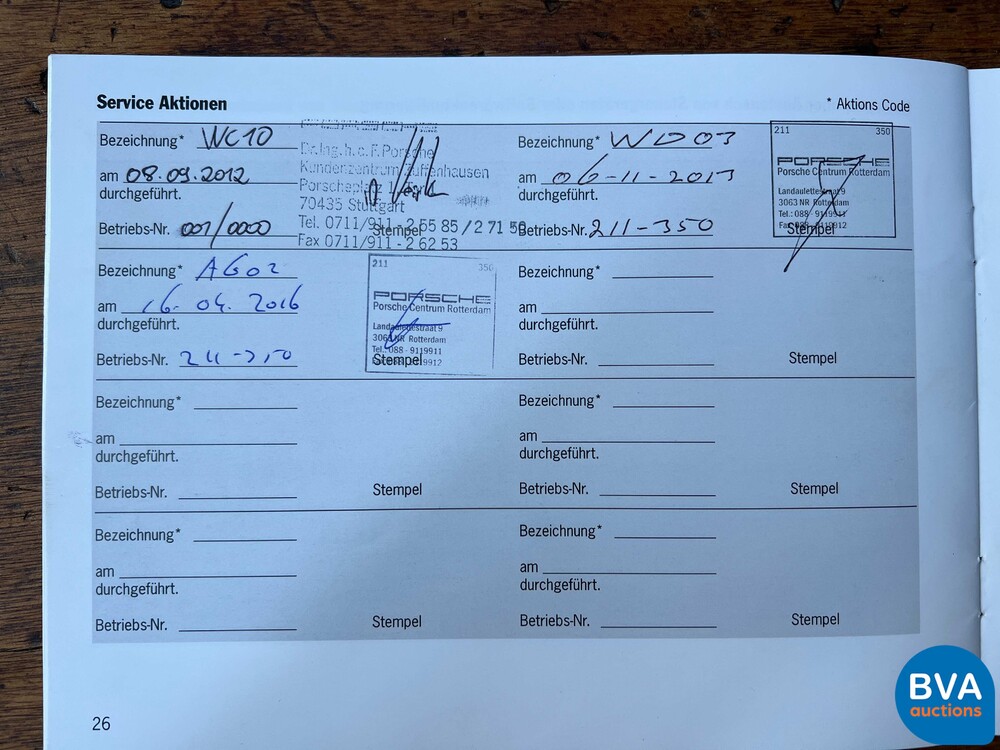 Service Aktionen
* Aktions Code
Bezeichnung* WC10
am 08.09.2012
durchgeführt.
Betriebs-Nr. 001/0000
Dr.Ing.h.c.F.Porsche
Kundenzentrum Zuffenhausen
Porscheplatz 1
70435 Stuttgart
Tel. 0711/911 - 2 55 85 / 2 71 5
Stempel
Fax 0711/911 - 2 62 53
Bezeichnung* WD03
am 06-11-2013
durchgeführt.
Betriebs-Nr. 211-350
211 350
PORSCHE
Porsche Centrum Rotterdam
Landaulettestraat 9
3063 NR Rotterdam
Tel.: 088 - 9119911
Stempel
Bezeichnung* AG02
am 16-04-2016
durchgeführt.
Betriebs-Nr. 211-350
211 350
PORSCHE
Porsche Centrum Rotterdam
Landaulettestraat 9
3063 NR Rotterdam
Tel.: 088 - 9119911
Stempel
Bezeichnung*
am
durchgeführt.
Betriebs-Nr.
Stempel
Bezeichnung*
am
durchgeführt.
Betriebs-Nr.
Stempel
Bezeichnung*
am
durchgeführt.
Betriebs-Nr.
Stempel
Bezeichnung*
am
durchgeführt.
Betriebs-Nr.
Stempel
Bezeichnung*
am
durchgeführt.
Betriebs-Nr.
Stempel
26
BVA
auctions